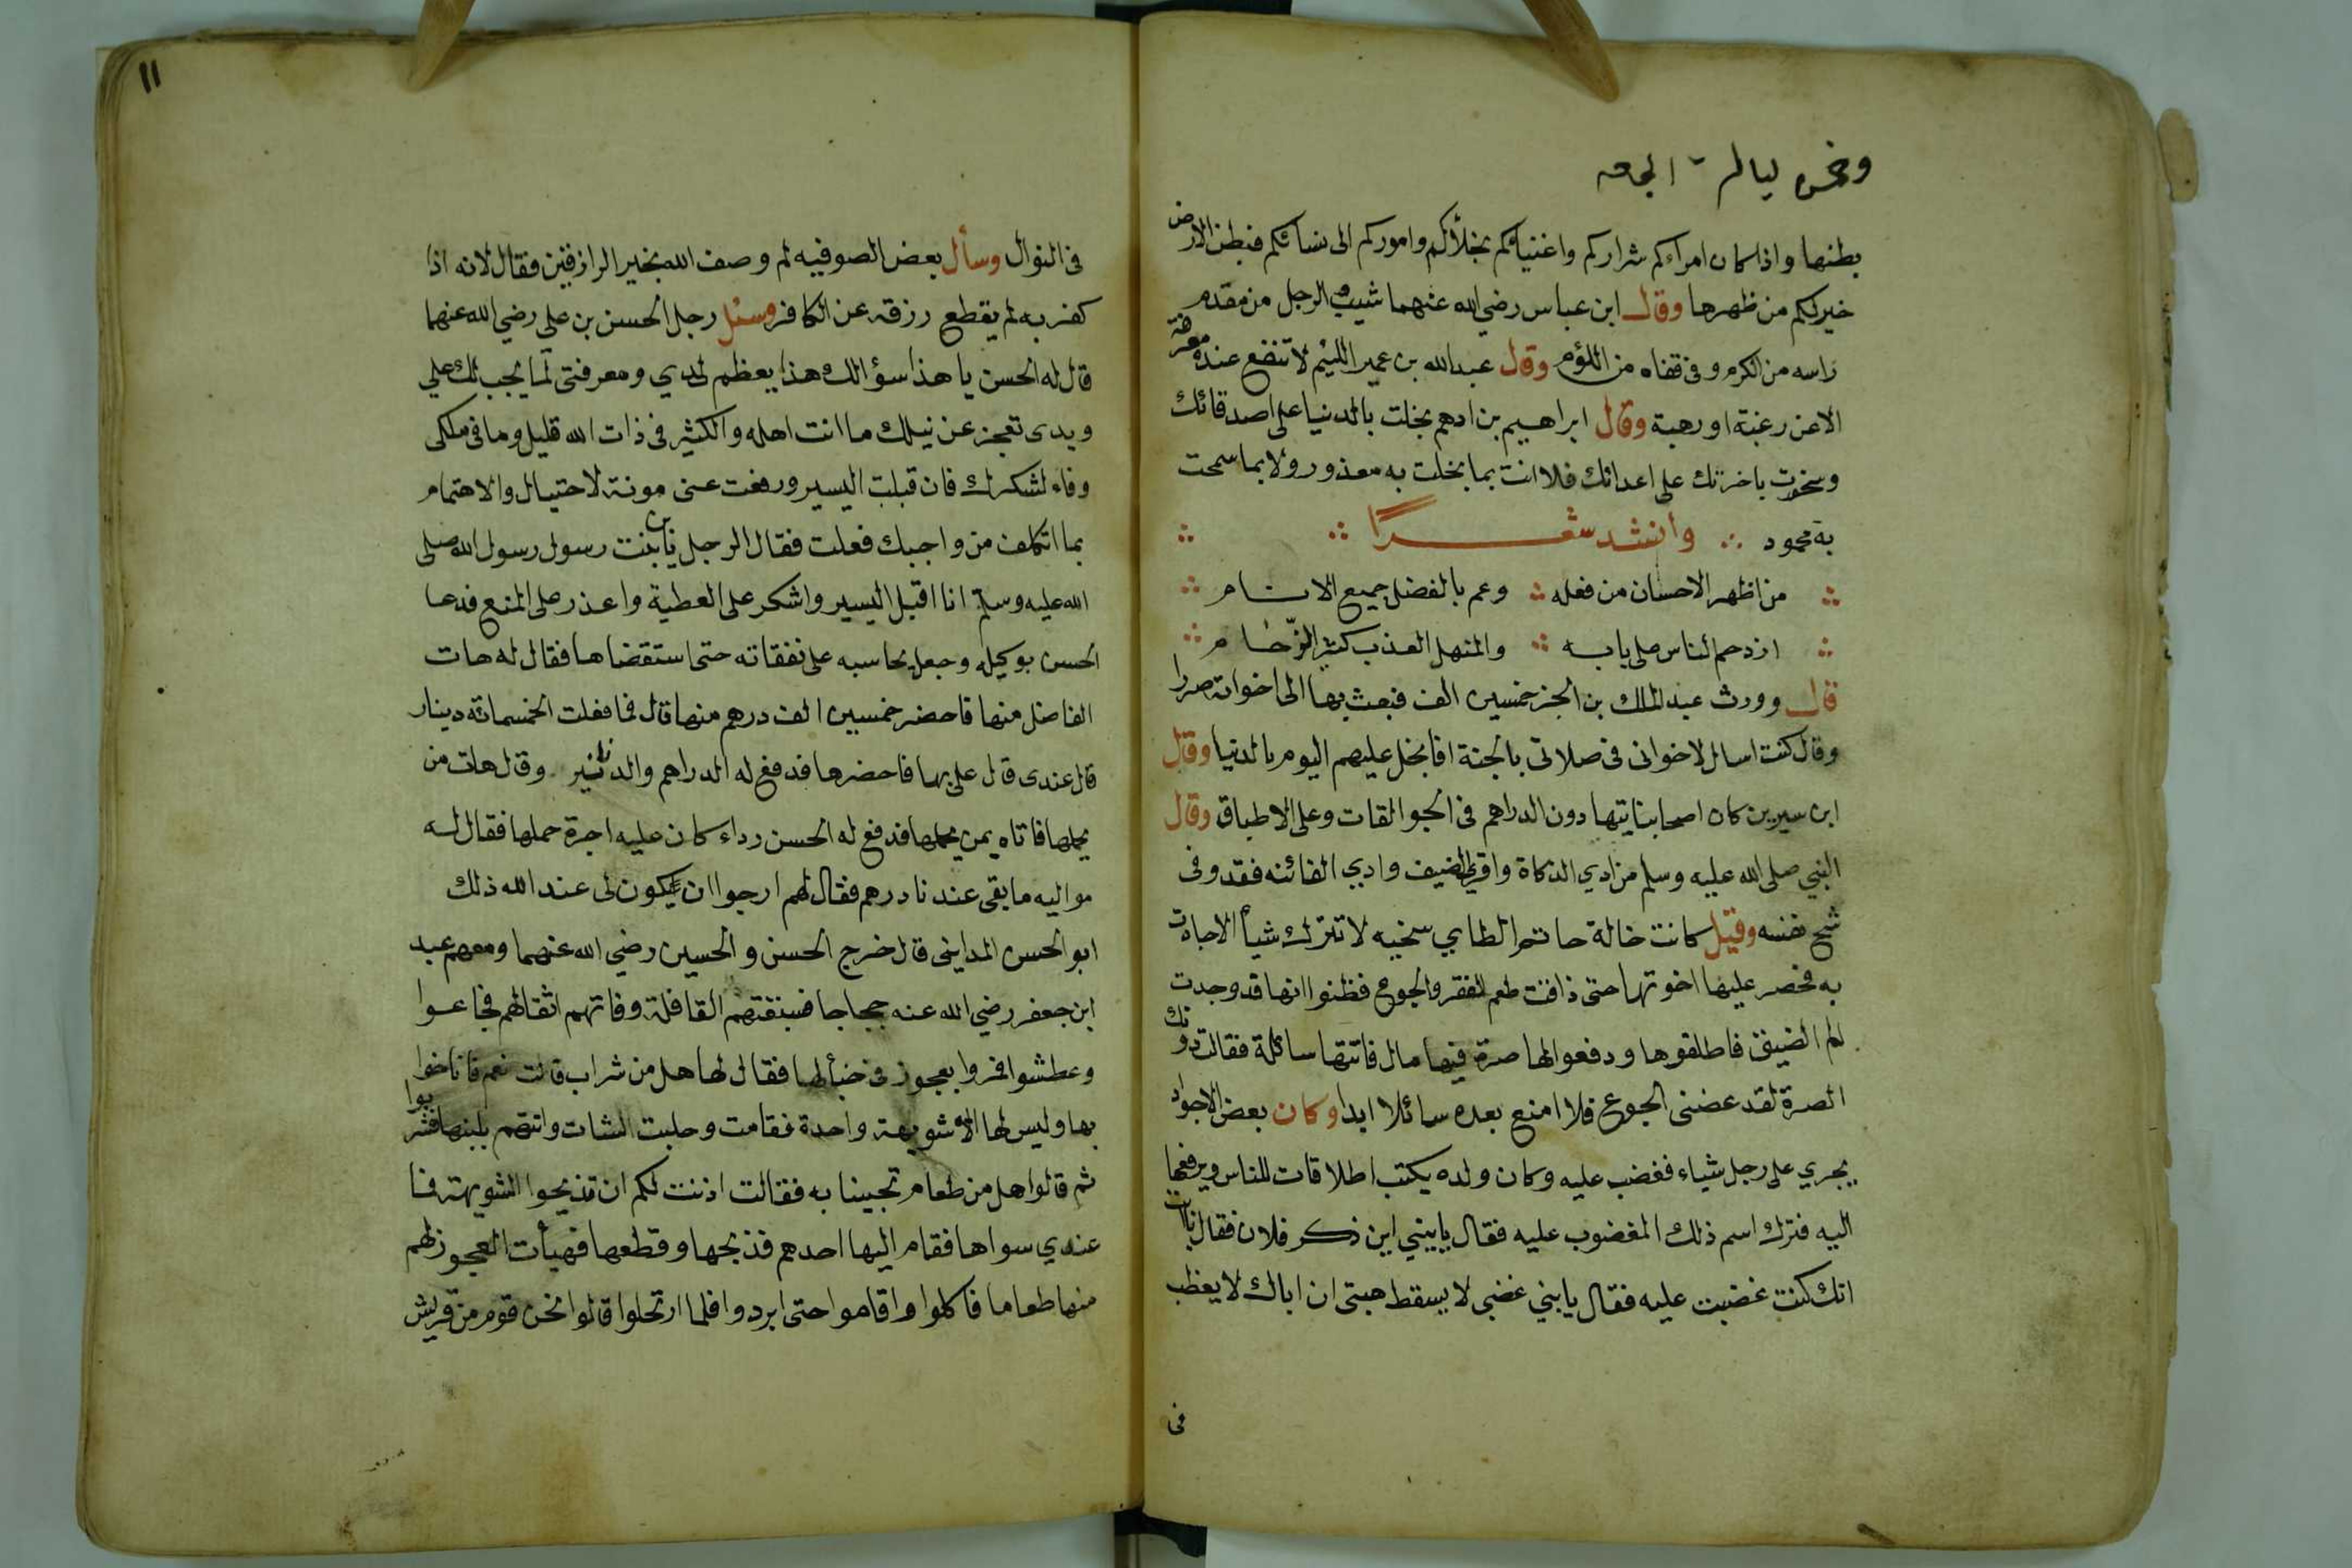 بطنها واذا كان امراءكم شراركم واغنياؤكم بخلأكم واموركم الى نسائكم فبطن الارض
خير لكم من ظهرها وقال ابن عباس رضي الله عنهما شيب الرجل من مقدم
راسه من الكرم وفى قفاه من اللؤم وقال عبدالله بن عمير اللئيم لا تنفع عنده معرفة
الا عن رغبة او رهبة وقال ابراهيم بن ادهم بخلت بالدنيا على اصدقائك
وسخوت باخرتك على اعدائك فلا انت بما بخلت به معذور ولا بما سمحت
به محمود وأنشد شعرًا
من اظهر الاحسان من فعله وعم بالفضل جميع الانام
ازدحم الناس على بابه والمنهل العذب كثير الزّحام
قال وورث عبد الملك بن الجز خمسين الف فبعث بها الى اخوانه صررا
وقال كنت اسال لاخوانى فى صلاتى بالجنة افابخل عليهم اليوم بالدنيا وقال
ابن سيرين كان اصحابنا يتهادون الدراهم فى الجوالقات وعلى الاطباق وقال
النبي صلى الله عليه وسلم من ادي الزكاة واقري الضيف وادي الفائنه فقد وفى
شح نفسه وقيل كانت خالة حاتم الطايي سخيه لا تترك شيأ الا جادت
به فحصر عليها اخوتها حتى ذاقت طعم الفقر والجوع فظنوا انها قد وجدت
لم الضيق فاطلقوها ودفعوا لها صرة فيها مال فاتتها سائلة فقالت دونك
الصرة لقد عضنى الجوع فلا امنع بعده سائلا ابدا وكان بعض الاجواد
يجري على رجل شياء فغضب عليه وكان ولده يكتب اطلاقات للناس ويرفعها
اليه فترك اسم ذلك المغضوب عليه فقال يابيني اين ذكر فلان فقال ياابت
انك كنت غضبت عليه فقال يابني غضبى لا يسقط هبتى ان اباك لا يغظب
فى
١١
فى النوال وسأل بعض الصوفيه لم وصف الله بخير الرازقين فقال لانه اذا
كفر به لم يقطع رزقه عن الكافر وسئل رجل الحسن بن على رضي الله عنهما
قال له الحسن يا هذا سؤالك هذا يعظم لدي ومعرفتى لما يجب لك علي
ويدى تعجز عن نيلك ما انت اهله والكثير فى ذات الله قليل وما فى ملكى
وفاء لشكرك فان قبلت اليسير ورفعت عنى مونة لاحتيال والاهتمام
بما اتكلف من واجبك فعلت فقال الرجل يابن بنت رسول رسول الله صلى
الله عليه وسلم انا اقبل اليسير واشكر على العطية واعذر على المنع فدعا
الحسن بوكيله وجعل يحاسبه على نفقاته حتى استقضاها فقال له هات
الفاضل منها فاحضر خمسين الف درهم منها قال فما فعلت الخمسمائة دينار
قال عندى قال علي بها فاحضرها فدفع له الدراهم والدنانير وقال هات من
يحملها فاتاه بمن يحملها فدفع له الحسن رداء كان عليه اجرة حملها فقال له
مواليه ما بقى عندنا درهم فقال لهم ارجوا ان يكون لى عند الله ذلك
ابو الحسن المداينى قال خرج الحسن والحسين رضي الله عنهما ومعهم عبد
ابن جعفر رضي الله عنه حجاجا فسبقتهم القافلة وفاتهم اثقالهم فجاعوا
وعطشوا فمروا بعجوز فى خبأ لها فقال لها هل من شراب قالت نعم فاناخوا
بها وليس لها الا شويهة واحدة فقامت وحلبت الشات واتتهم بلبنها فشربوا
ثم قالوا هل من طعام تجيبنا به فقالت اذنت لكم ان تذبحوا الشويهة فما
عندي سواها فقام اليها احدهم فذبحها وقطعها فهيأت العجوز لهم
منها طعاما فاكلوا واقاموا حتى ابردوا فلما ارتحلوا قالوا نحن قوم من قريش